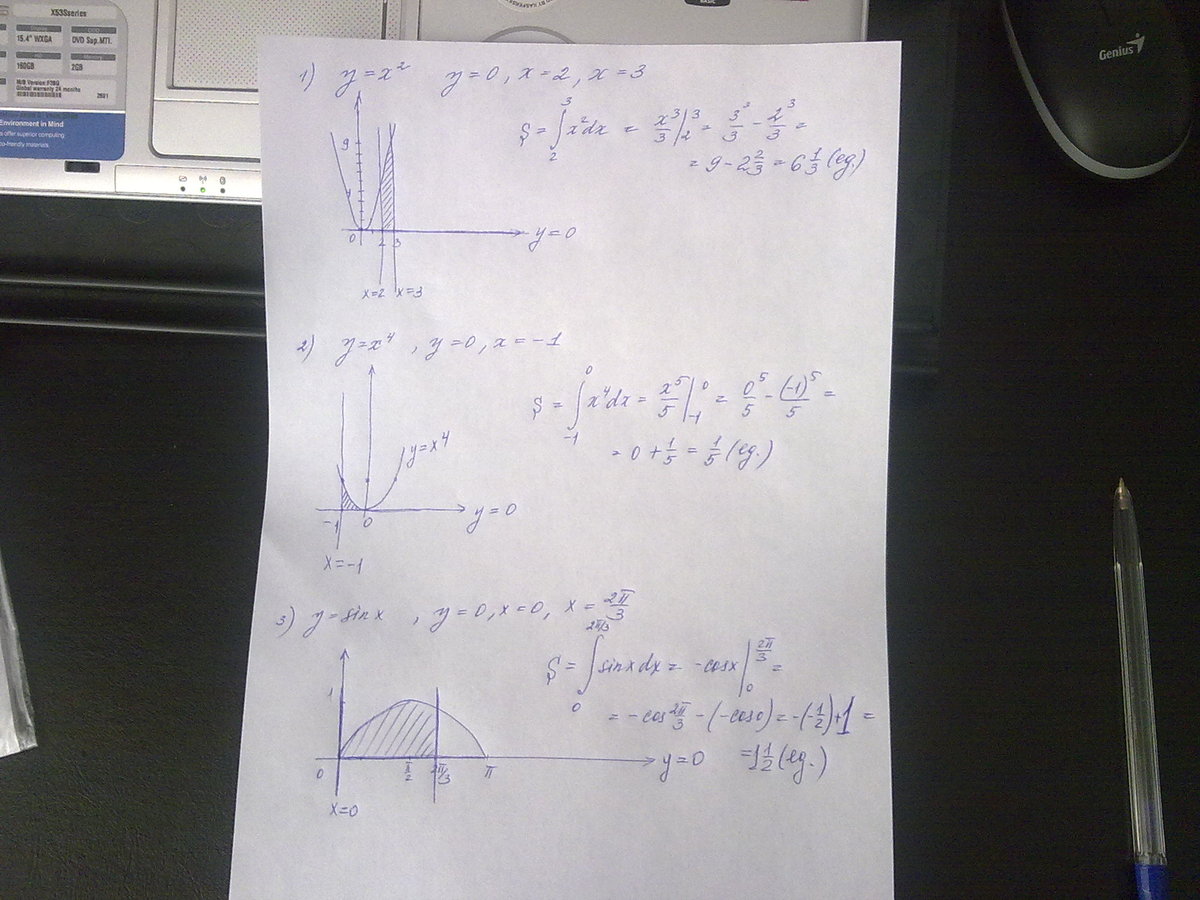 X53Series
15.4" WXGA
DVD Sup.MTI.
160GB
2GB
Global warranty 24 months
Environment in Mind
offer superior computing
co-friendly materials.
BASIC
Genius
1) y = x² y = 0, x = 2, x = 3
S = ∫₂³ x²dx = x³/3 |₂³ = 3³/3 - 2³/3 =
= 9 - 2 2/3 = 6 1/3 (eg.)
9
0 2 3 y = 0
x=2 x=3
2) y = x⁴, y = 0, x = -1
S = ∫₋₁⁰ x⁴dx = x⁵/5 |₋₁⁰ = 0⁵/5 - (-1)⁵/5 =
= 0 + 1/5 = 1/5 (eg.)
y = x⁴
-1 0 y = 0
x = -1
3) y = sin x, y = 0, x = 0, x = 2π/3
S = ∫₀^(2π/3) sin x dx = -cos x |₀^(2π/3) =
= -cos 2π/3 - (-cos 0) = -(-1/2) + 1 =
= 1 1/2 (eg.)
1
0 π/2 2π/3 π y = 0
x=0